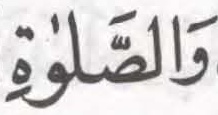 وَالصَّلٰوةِ